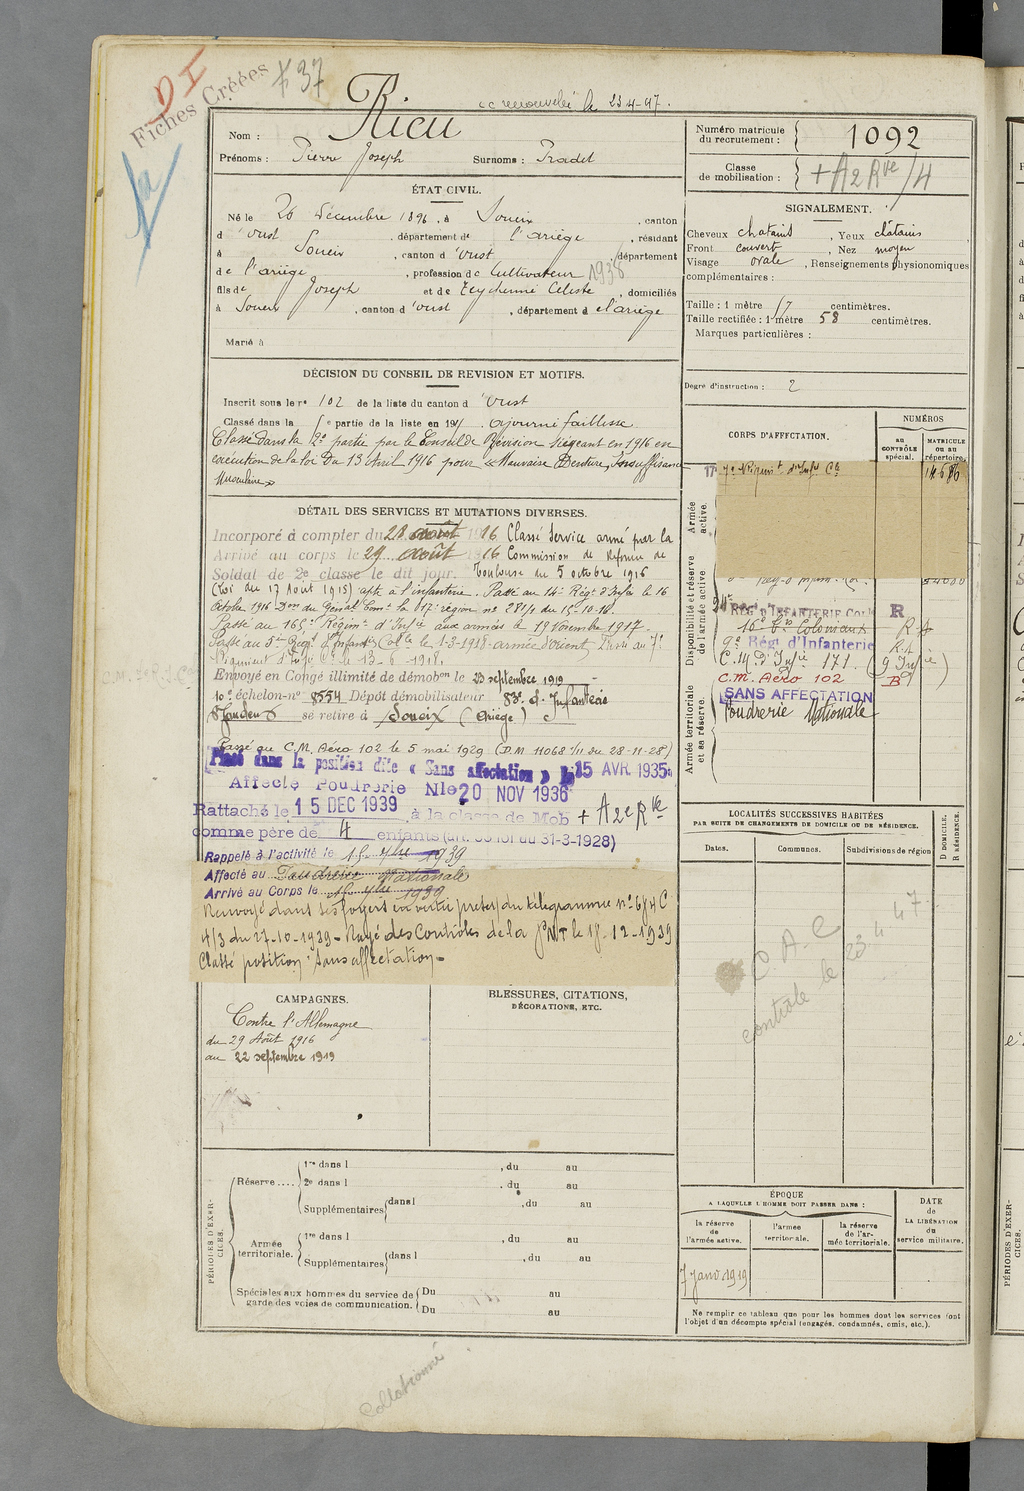 DI
Fiches Créées
37
cc renouvelée le 23-4-47.
Rieu
Nom :
Prénoms : Pierre Joseph Surnoms : Pradel
Numéro matricule du recrutement : 1092
Classe de mobilisation : + A 2 Rve/4
ÉTAT CIVIL.
Né le 26 Décembre 1896, à Soueix, canton
d'Oust, département de l'Ariège, résidant
à Soueix, canton d'Oust, département
de l'Ariège, profession de Cultivateur 1938
fils de Joseph et de Teychenné Céleste, domiciliés
à Soueix, canton d'Oust, département d el'ariège
Marié à
SIGNALEMENT.
Cheveux chatains, Yeux châtains
Front couvert, Nez moyen
Visage ovale, Renseignements physionomiques
complémentaires :
Taille : 1 mètre 57 centimètres.
Taille rectifiée : 1 mètre 58 centimètres.
Marques particulières :
Degré d'instruction : 2
DÉCISION DU CONSEIL DE REVISION ET MOTIFS.
Inscrit sous le no 102 de la liste du canton d'Oust
Classé dans la 5e partie de la liste en 191 . ajourné faiblesse
Classé dans la 2e partie par le Conseil de Révision siégeant en 1916 en
exécution de la loi du 13 Avril 1916 pour « Mauvaise Denture, Insuffisance
Musculaire »
DÉTAIL DES SERVICES ET MUTATIONS DIVERSES.
Incorporé à compter du 28 août 1916 Classé Service armé par la
Arrivé au corps le 29 août 1916 Commission de Réforme de
Soldat de 2e classe le dit jour. Toulouse du 5 octobre 1916
(Loi du 17 Août 1915) apte à l'infanterie. Passé au 14e Régt d'Infie le 16
Octobre 1916 Don du Général Comt la 17e région no 281/1 du 15-10-16.
Passé au 165e Régimt d'Infie aux armées le 19 Novembre 1917.
Passé au 5e Régt d'Infantie Colle le 1-3-1918 armée d'orient, Passé au 7e
Régiment d'Infie Cle le 13-6-1918.
Envoyé en Congé illimité de démobon le 23 septembre 1919
10e échelon no 8554 Dépôt démobilisateur 83e d'Infanterie
St Gaudens se retire à Soueix (Ariège)
Passé au C.M. Aéro 102 le 5 mai 1929 (D.M. 11068 1/11 du 28-11-28)
Placé dans la position dite « Sans affectation » le 15 AVR 1935
Affecté Poudrerie Nle 20 NOV 1936
Rattaché le 15 DEC 1939 à la classe de Mob + A 2e Rve
comme père de 4 enfants (art. 58 loi du 31-3-1928)
Rappelé à l'activité le 15 7bre 1939
Affecté au Poudrerie Nationale
Arrivé au Corps le 15 7bre 1939
Renvoyé dans ses foyers en vertu prescr du télégramme no 684 C
4/3 du 27-10-1939 - Rayé des Contrôles de la PNT le 15-12-1939
Classé position Sans affectation -
CORPS D'AFFECTATION.
NUMÉROS
au CONTRÔLE spécial.
MATRICULE ou au répertoire.
Armée active.
17 7e Régimt d'Infie Cle 14686
Disponibilité et réserve de l'armée active
REGt D'INFANTERIE Cole R
16e Bon Coloniaux R A
9e Régt d'Infanterie R.A
C.M. d'Infie 171. (9 Infie)
C.M. Aéro 102
SANS AFFECTATION
Poudrerie Nationale
Armée territoriale et sa réserve.
LOCALITÉS SUCCESSIVES HABITÉES
PAR SUITE DE CHANGEMENTS DE DOMICILE OU DE RÉSIDENCE.
Dates. Communes. Subdivisions de région
D DOMICILE. R RÉSIDENCE.
C. A. C
contrôle le 23.4.47
CAMPAGNES.
Contre l'Allemagne
du 29 Août 1916
au 22 septembre 1919
BLESSURES, CITATIONS,
DÉCORATIONS, ETC.
PÉRIODES D'EXERCICES.
Réserve.... 1re dans l , du au
2e dans l , du au
Supplémentaires dans l , du au
Armée territoriale. 1re dans l , du au
Supplémentaires dans l , du au
Spéciales aux hommes du service de garde des voies de communication. Du au
Du au
ÉPOQUE
A LAQUELLE L'HOMME DOIT PASSER DANS :
la réserve de l'armée active.
l'armée territoriale.
la réserve de l'armée territoriale.
DATE de LA LIBÉRATION du service militaire.
7 janv 1919
Ne remplir ce tableau que pour les hommes dont les services font
l'objet d'un décompte spécial (engagés, condamnés, omis, etc.).
Collationné
PÉRIODES D'EXERCICES.